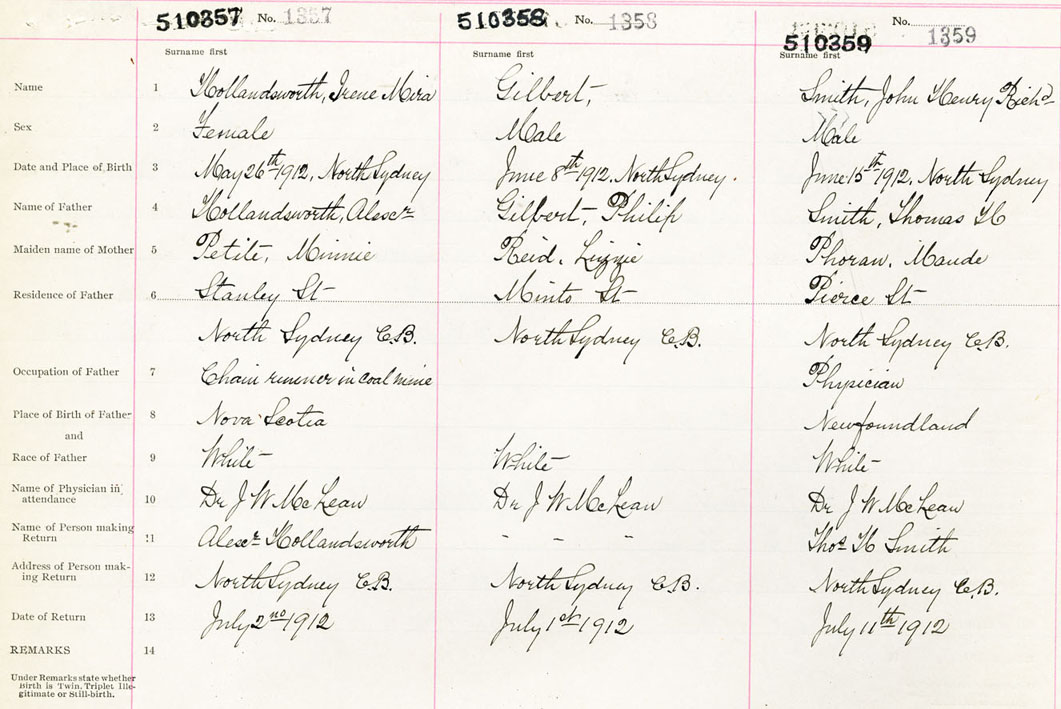 510357 No. 1357 510358 No. 1358 510359 No. 1359
Surname first Surname first Surname first
Name 1 Hollandsworth, Irene Mira Gilbert, Smith, John Henry Richd
Sex 2 Female Male Male
Date and Place of Birth 3 May 26th 1912, North Sydney June 8th 1912. North Sydney. June 15th 1912, North Sydney
Name of Father 4 Hollandsworth, Alexr Gilbert, Philip Smith, Thomas H
Maiden name of Mother 5 Petite, Minnie Reid, Lizzie Phoran, Maude
Residence of Father 6 Stanley St Minto St Pierce St
North Sydney C.B. North Sydney C.B. North Sydney C.B.
Occupation of Father 7 Chain runner in coal mine Physician
Place of Birth of Father 8 Nova Scotia Newfoundland
and
Race of Father 9 White White White
Name of Physician in attendance 10 Dr J W McLean Dr J W McLean Dr J W McLean
Name of Person making Return 11 Alexr Hollandsworth - - - Thos H Smith
Address of Person mak-
ing Return 12 North Sydney C.B. North Sydney C.B. North Sydney C.B.
Date of Return 13 July 2nd 1912 July 1st 1912 July 11th 1912
REMARKS 14
Under Remarks state whether
Birth is Twin, Triplet Ille-
gitimate or Still-birth.